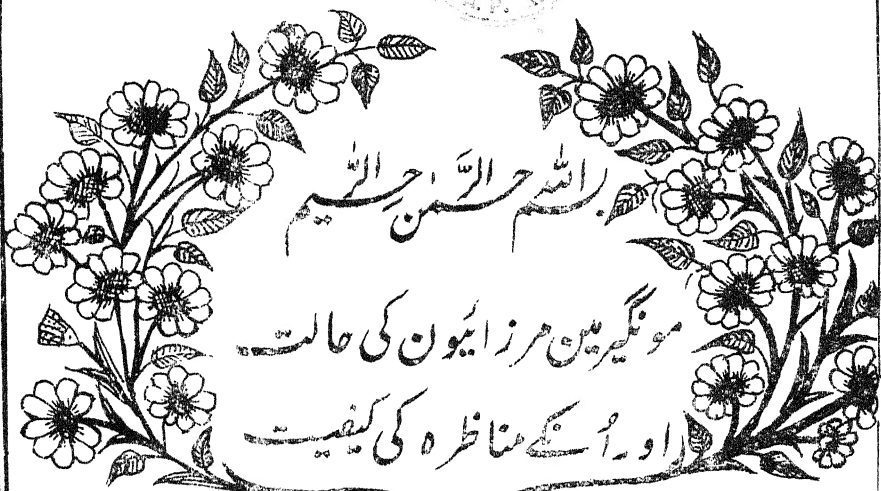 بسم اللہ الرحمٰن الرحیم
مونگیر مین مرزائیون کی حالت
اور اُنکے مناظرہ کی کیفیت